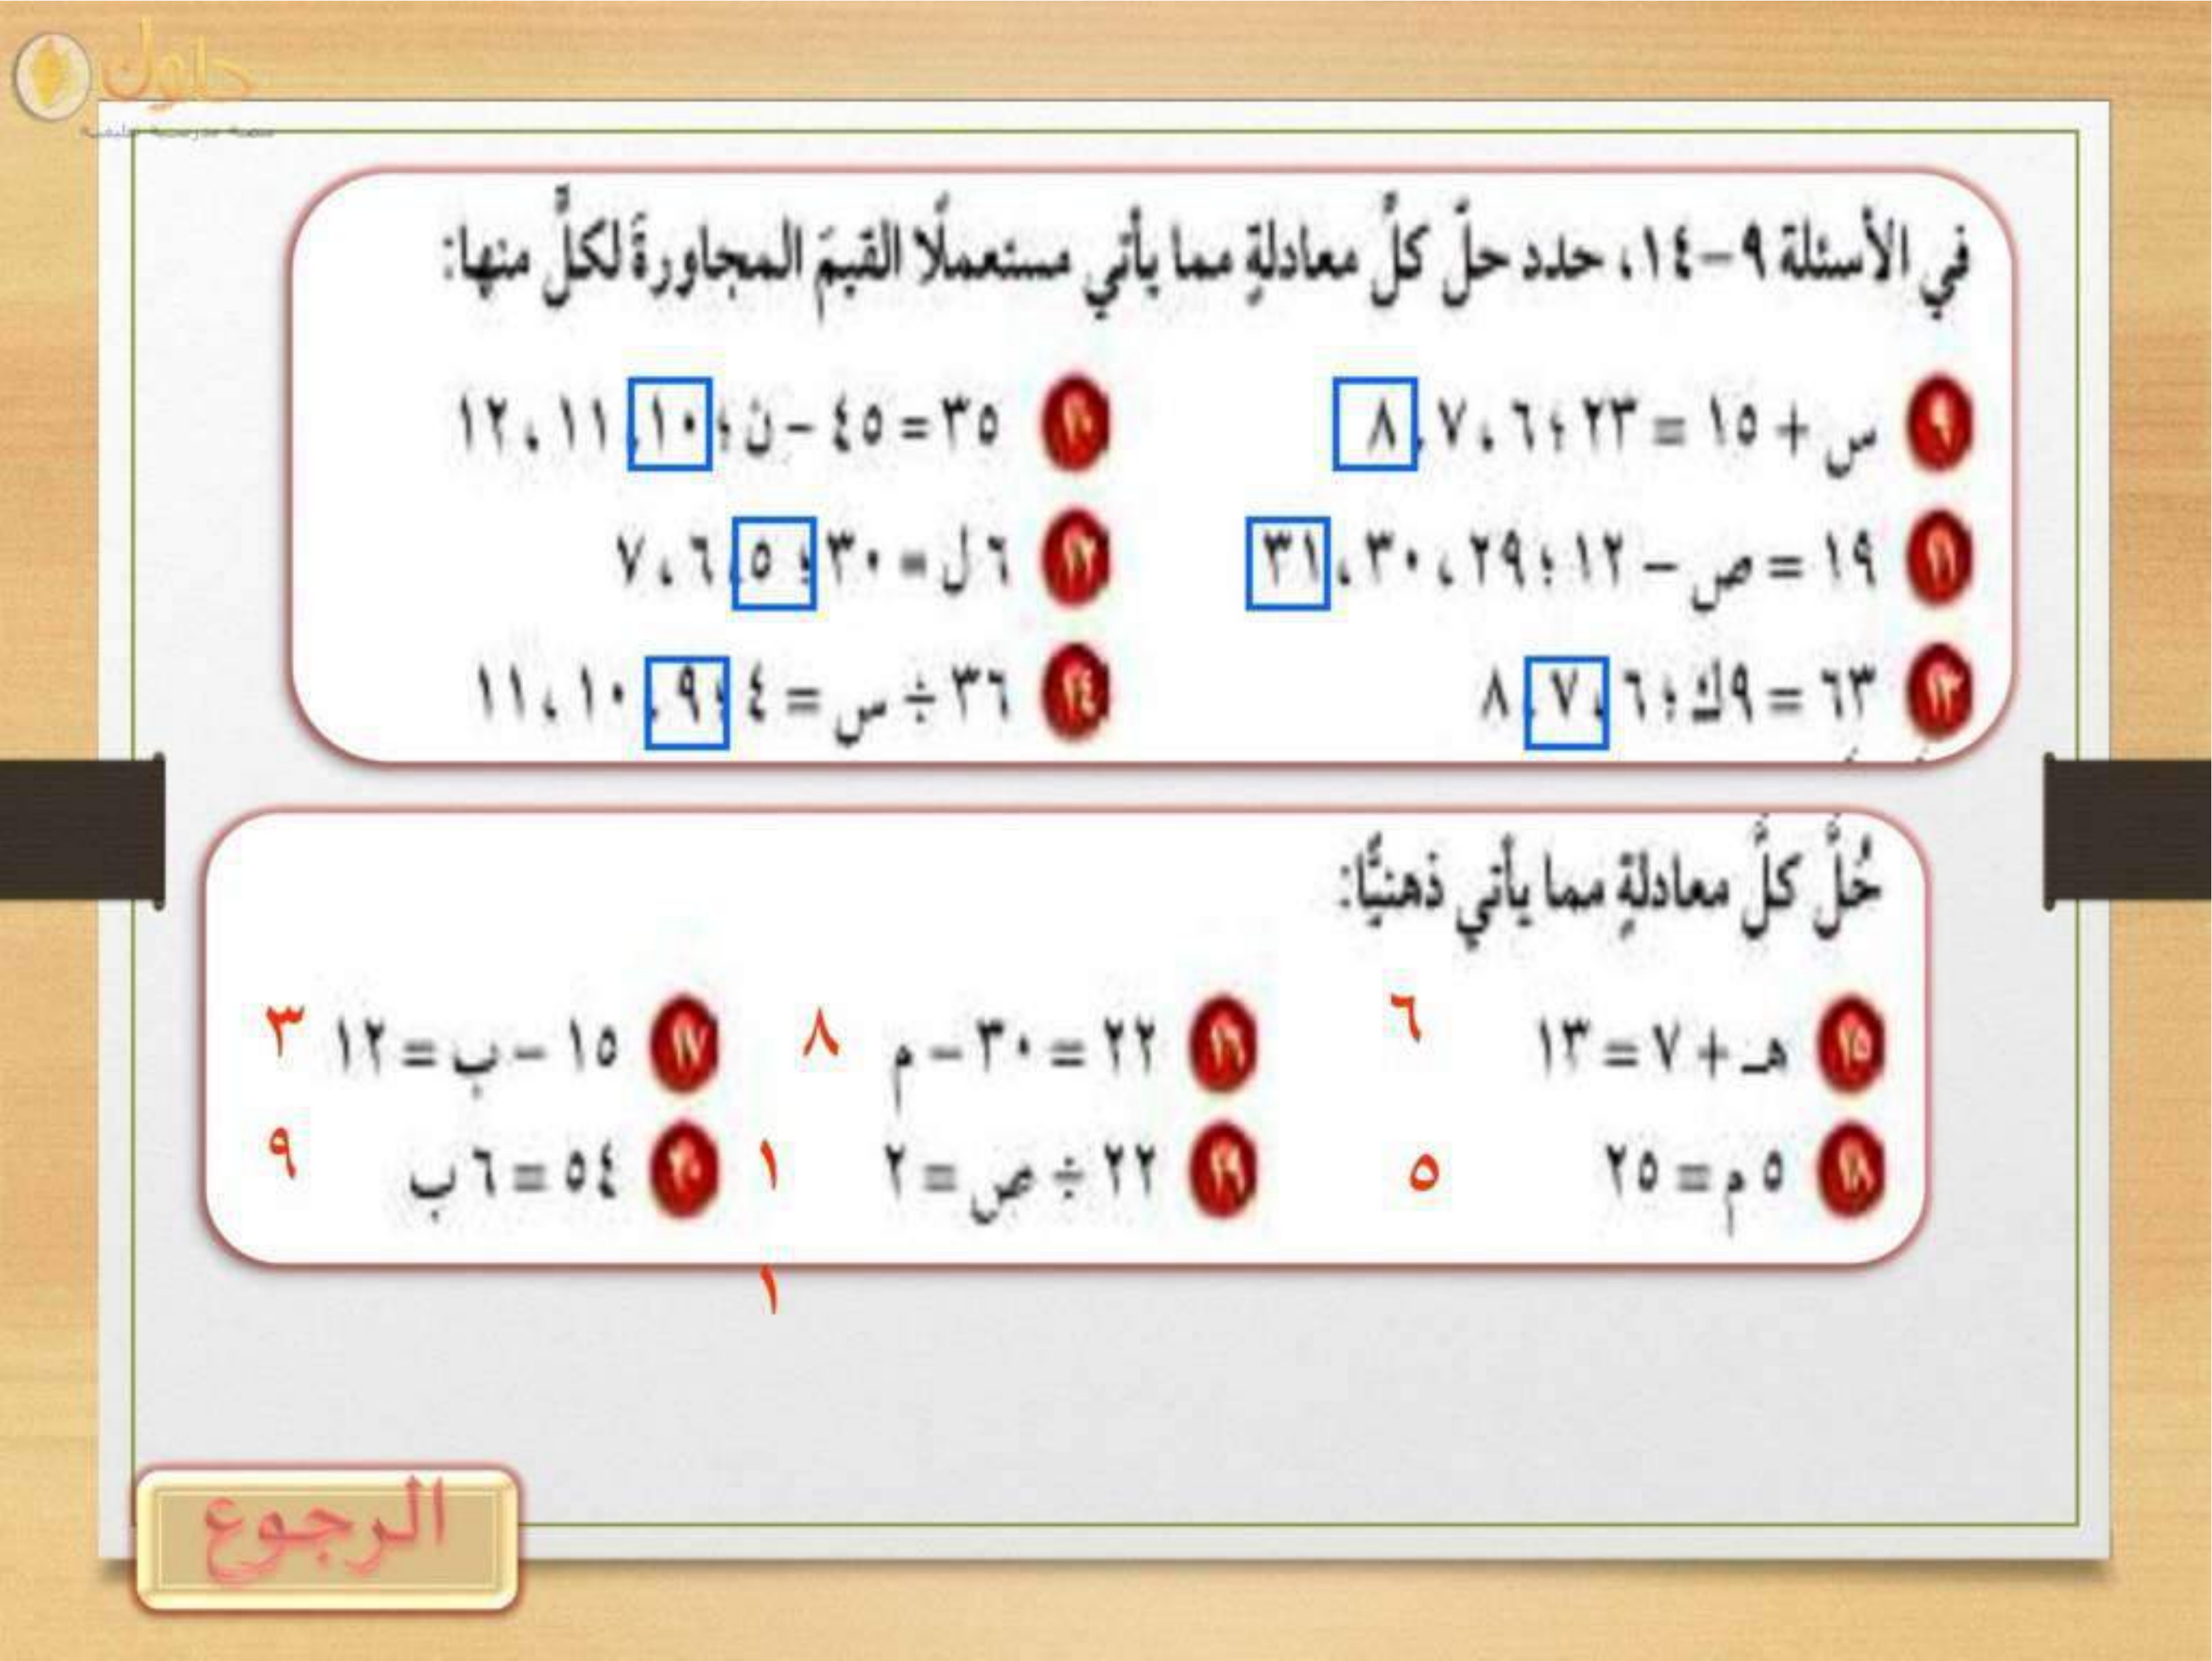 حلول
منصة مدرستية تعليمية
في الأسئلة ٩–١٤، حدد حلّ كلِّ معادلةٍ مما يأتي مستعملًا القيمَ المجاورةَ لكلٍّ منها:
٩ س + ١٥ = ٢٣ ؛ ٦، ٧، ٨ ١٠ ٣٥ = ٤٥ – ن ؛ ١٠، ١١، ١٢
١١ ١٩ = ص – ١٢ ؛ ٢٩، ٣٠، ٣١ ١٢ ٦ ل = ٣٠ ؛ ٥، ٦، ٧
١٣ ٦٣ = ٩ك ؛ ٦، ٧، ٨ ١٤ ٣٦ ÷ س = ٤ ؛ ٩، ١٠، ١١
حُلَّ كلَّ معادلةٍ مما يأتي ذهنيًّا:
١٥ هـ + ٧ = ١٣ ٦ ١٦ ٢٢ = ٣٠ – م ٨ ١٧ ١٥ – ب = ١٢ ٣
١٨ ٥ م = ٢٥ ٥ ١٩ ٢٢ ÷ ص = ٢ ١ ٢٠ ٥٤ = ٦ ب ٩
١
الرجوع